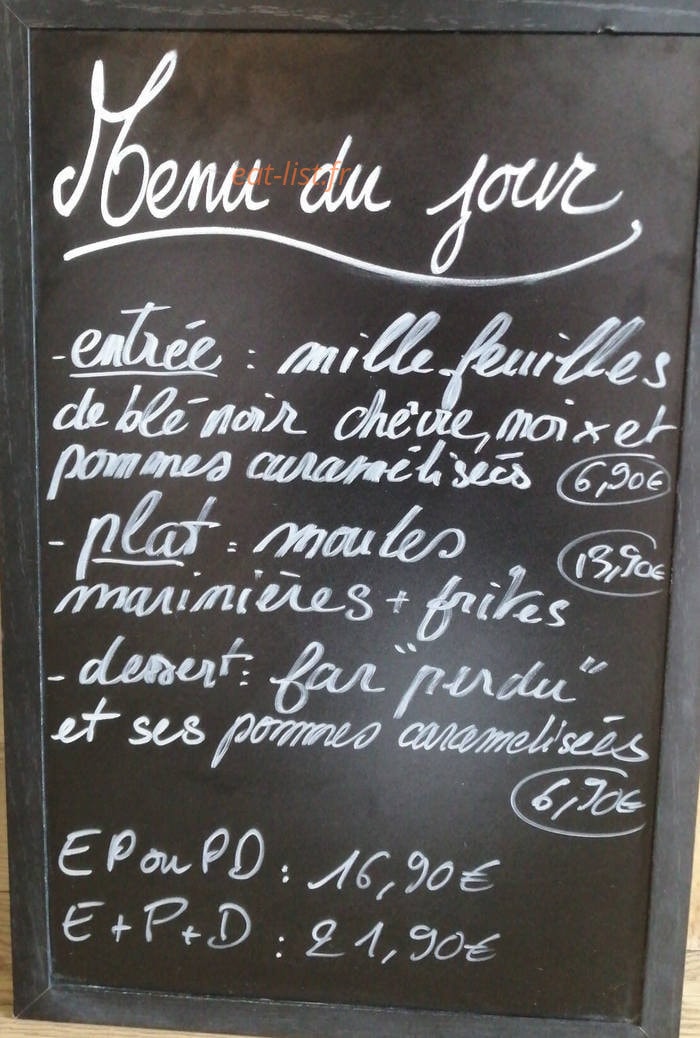 Menu du jour
eat-list.fr
- entrée : mille-feuilles
de blé noir chèvre, noix et
pommes caramélisées 6,90€
- plat : moules 13,90€
marinières + frites
- dessert : far "perdu"
et ses pommes caramelisées
6,90€
EP ou PD : 16,90€
E+P+D : 21,90€